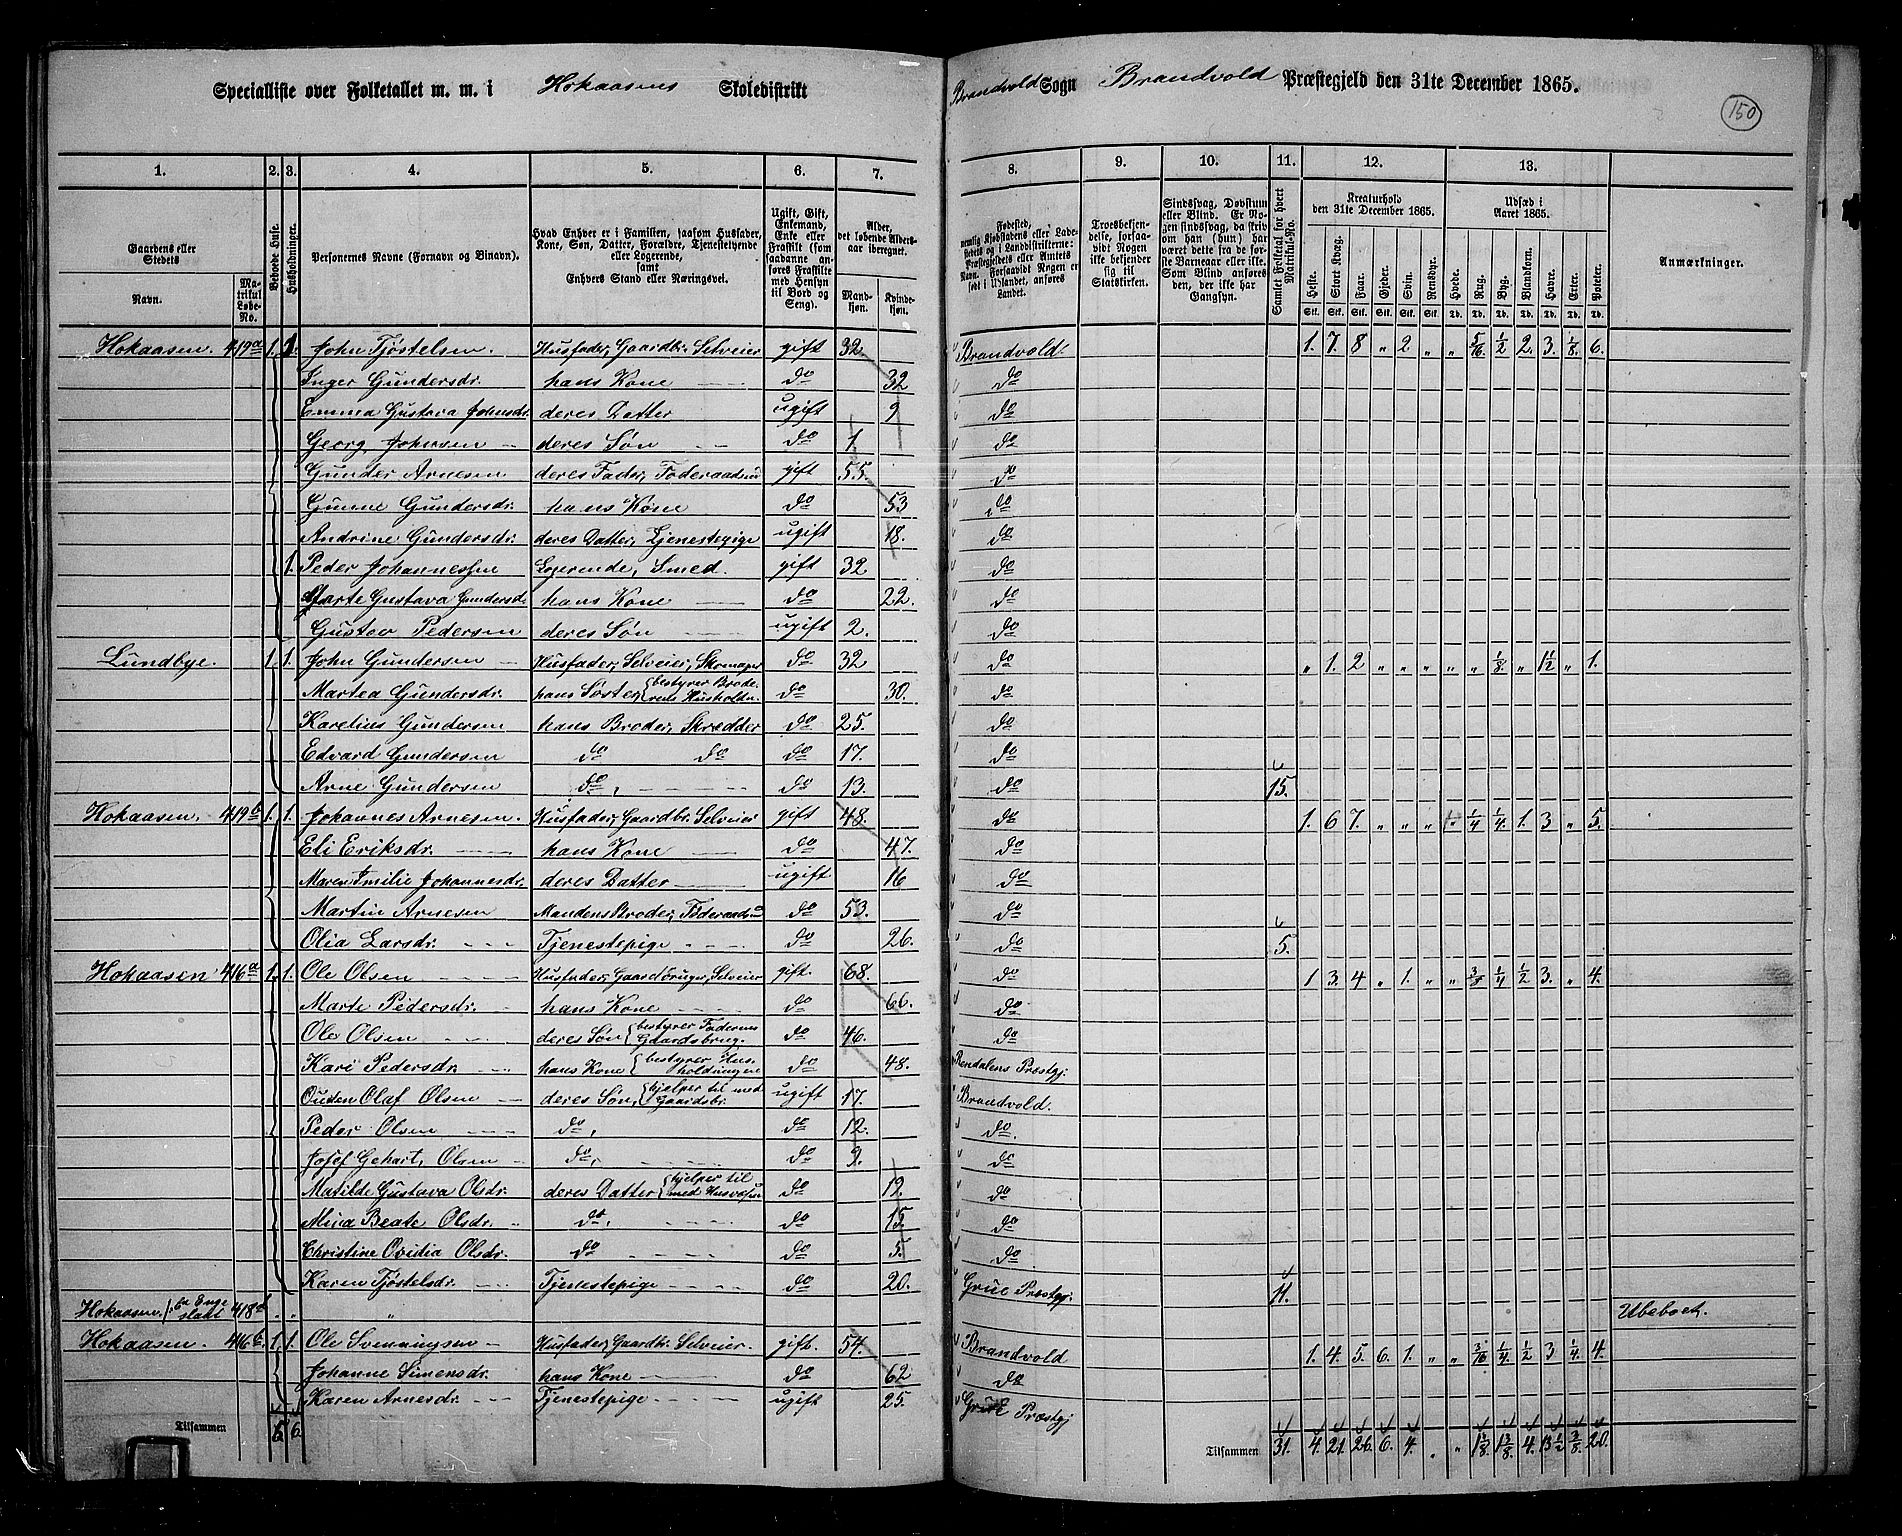 Specialliste over Folketallet m. m. i Hokaasens Skoledistrikt Brandvold Sogn Brandvold Præstegjeld den 31te December 1865.
150
1. 2. 3. 4. 5. 6. 7. 8. 9. 10. 11. 12. 13.
Gaardens eller Stedets Navn. Matrikul Løbe-No. Beboede Huse. Husholdninger. Personernes Navne (Fornavn og Binavn). Hvad Enhver er i Familien, saasom Husfader, Kone, Søn, Datter, Forældre, Tjenestetyende eller Logerende, samt Enhvers Stand eller Næringsvei. Ugift, Gift, Enkemand, Enke eller Fraskilt (som saadanne anføres Fraskilte med Hensyn til Bord og Seng). Alder, det løbende Aldersaar iberegnet. Mandkjøn. Kvindekjøn.
Fødested, nemlig Kjøbstadens eller Ladestedets og i Landdistrikterne: Præstegjeldets eller Amtets Navn. Forsaavidt Nogen er født i Udlandet, anføres Landet. Troesbekjendelse, forsaavidt Nogen ikke bekjender sig til Statskirken. Sindssvag, Døvstum eller Blind. Er Nogen sindssvag, da skriv om han (hun) har været dette fra de første Barneaar eller ikke. Som Blind anføres den, der ikke har Gangsyn. Samlet Folketal for hvert Matrikul-No. Kreaturhold den 31te December 1865. Udsæd i Aaret 1865. Anmærkninger.
Heste. Stort Kvæg. Faar. Gjeder. Svin. Rensdyr. Hvede. Rug. Byg. Blandkorn. Havre. Erter. Poteter.
Stk. Stk. Stk. Stk. Stk. Stk. Td. Td. Td. Td. Td. Td. Td.
Hokaasen. 419a 1. 1. John Tjøstelsen. Husfader, Gaardbr. Selveier gift 32. Brandvold. 1. 7. 8 " 2 " " 5/16. 1/2 2. 3. 1/8. 6.
Inger Gundersdr. hans Kone do 32 do
Emma Gustava Johnsdr. deres Datter ugift 9 do
Georg Johnsen deres Søn do 1. do
Gunder Arnesen deres Fader, Føderaadsm gift 55. do
Gunne Gundersdr. hans Kone do 53 do
Andrine Gundersdr. deres Datter, Tjenestepige ugift 18. do
1. Peder Johannessen Logerende, Smed. gift 32 do
Marte Gustava Gundersd. hans Kone do 22. do
Gustav Pedersen deres Søn ugift 2. do
Lundbye. 1. 1. John Gundersen Husfader, Selveier, Skomager do 32 do " 1. 2 " " " " " 1/8. " 1 1/2 " 1.
Martea Gundersdr. hans Søster, bestyrer Broderens Husholdn. do 30. do
Karelius Gundersen hans Broder, Skrædder do 25. do
Edvard Gundersen do do do 17. do
Arne Gundersen do, do 13. do 15.
Hokaasen. 419b 1. 1. Johannes Arnesen. Husfader, Gaardbr. Selveier gift 48. do 1. 6 7. " " " " 1/4 1/4. 1. 3 " 5.
Eli Eriksdr. hans Kone do 47. do
Maren Emilie Johannesdr. deres Datter ugift 16 do
Martin Arnesen Mandens Broder, Føderaadsm do 53. do
Olia Larsdr. Tjenestepige do 26. do 5.
Hokaasen 416a 1. 1. Ole Olsen Husfader, Gaardbruger, Selveier gift. 68. do 1 3. 4 " 1. " " 3/8 1/4 1/2 3. " 4.
Marte Pedersdr. hans Kone do 66. do
Ole Olsen deres Søn bestyrer Faderens Gaardsbrug. do 46. do
Kari Pedersdr. hans Kone bestyrer Husholdningen do 48. Rendalens Præstgj.
Ouden Olaf Olsen deres Søn, hjelper til med Gaardsbr. ugift 17. Brandvold.
Peder Olsen do, do 12. do.
Josef Gehart, Olsen do, do 9. do
Matilde Gustava Olsdr. deres Datter hjelper til med Husvæsen do 19. do
Mina Beate Olsdr. do, do 15. do
Christine Ovidia Olsdr. do do 5. do
Karen Tjøstelsdr. Tjenestepige do 20. Grue Præstgj. 11.
Hokaasen, 418 " " " Ubeboet.
Hokaasen. 416b. 1. 1. Ole Svenningsen Husfader, Gaardbr. Selveier. gift. 54. Brandvold 1. 4. 5. 6. 1. " " 3/16 1/4. 1/2 3 1/4. 4.
Johanne Simensdr. hans Kone do 62 do
Karen Arnesdr. Tjenestepige ugift 25. Grue Præstgj
Tilsammen 5. 6. Tilsammen 31. 4. 21. 26. 6. 4. " " 1 1/8. 1 3/8. 4. 13 1/2 3/8. 20.